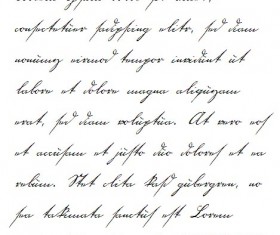 consectetuer sadipscing elitr, sed diam
nonumy eirmod tempor invidunt ut
labore et dolore magna aliquyam
erat, sed diam voluptua. At vero eos
et accusam et justo duo dolores et ea
rebum. Stet clita kasd gubergren, no
sea takimata sanctus est Lorem